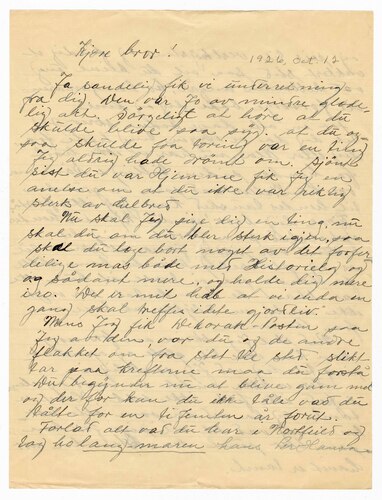 Kjære bror!
1926, Oct. 12
Ja sandelig fik vi underretning
fra dig Den var jo av mindre glæde
lig akt. Sørgeligt at høre at du
skulde blive saa syg. at du og
saa skulde faa toring var en ting
Jeg aldrig hade drømt om.
sist du var Hjemme fik Jeg en
anelse om at du ikke var riktig
sterk av helbred
Nu skal Jeg sige dig en ting, nu
skal du om du bler sterk igjen, saa
skal du lege bort noget av det forfer
dilige mas både med Historielag og
og sådant mere, og holde dig mere
i ro. Det er mit håb at vi enda en
gang skal treffes i dete jordliv.
Mens Jeg fik Dekorah-Posten saa
Jeg av den, var du og de andre
flakket om fra sted til sted slikt
tar paa kreftterne maa du forstå
Du begynder nu at blive gammel
og derfor kan du ikke tåle vad du
tålte for en ti femten år forut.
Forlad alt vad du har i Northfield og
tag